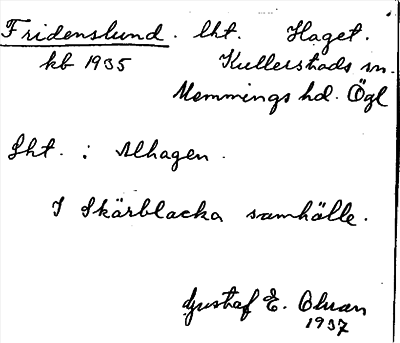 Fridenslund. lht. Haget.
kb 1935 Kullerstads sn.
Memmings hd. Ögl
Sht. : Alhagen.
I Skärblacka samhälle.
Gustaf E. Olman
1937